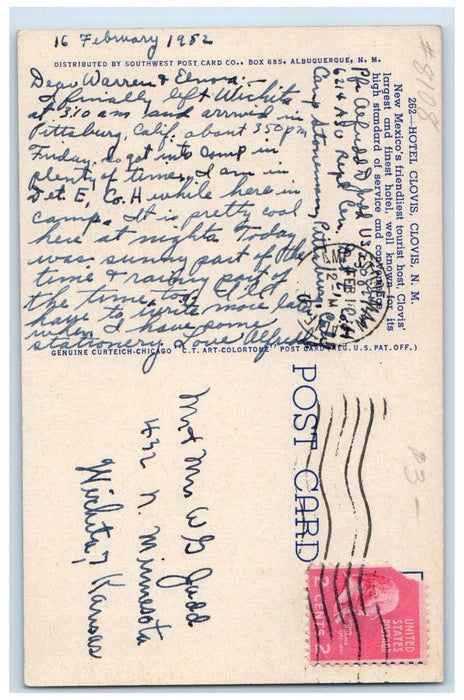 16 February 1952
DISTRIBUTED BY SOUTHWEST POST CARD CO., BOX 685, ALBUQUERQUE, N. M.
Dear Warren & Elnora:
I finally left Wichita
at 3:10 am and arrived in
Pittsburg, Calif. about 3:50 pm
Friday, so got into camp in
plenty of time. I am in
Det. E, Co. H while here in
camp. It is pretty cool
here at nights. Today
was sunny part of the
time & rainy part of
the time too. I'll
have to write more later
when I have some
stationery. Love Alfred
GENUINE CURTEICH-CHICAGO "C.T. ART-COLORTONE" POST CARD (REG. U.S. PAT. OFF.)
262—HOTEL CLOVIS, CLOVIS, N. M.
New Mexico's friendliest tourist host, Clovis'
largest and finest hotel, well known for its
high standard of service and
Pfc Alfred Judd US
6214 ASU Repl Cen,
Camp Stoneman, Pittsburg, Calif
FEB
#8108
P3-
POST CARD
Mr & Mrs W G Judd
432 N. Minnesota
Wichita 7, Kansas
UNITED
STATES
POSTAGE
2 CENTS 2